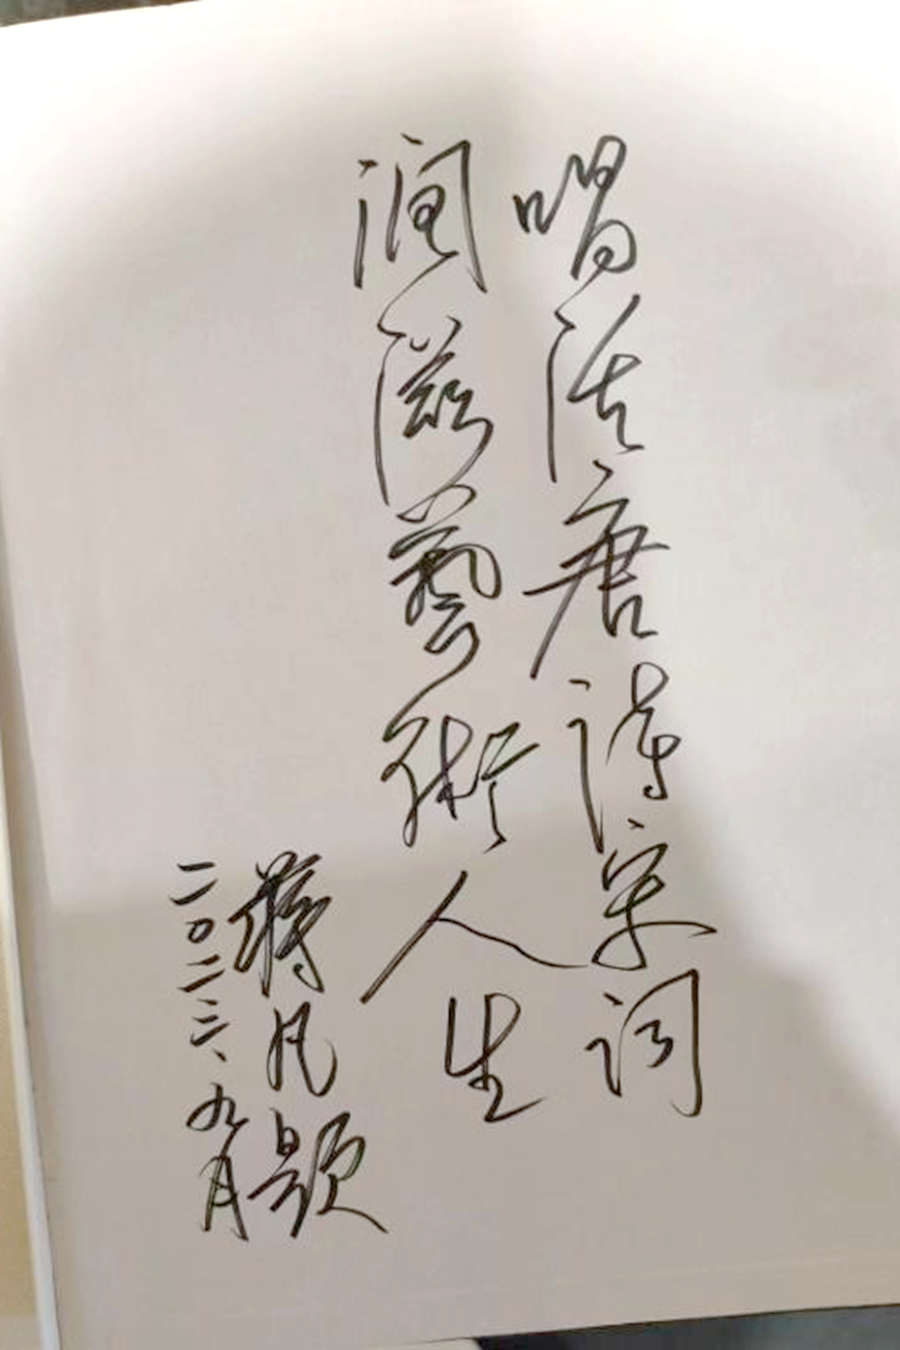 唱活唐诗宋词
润滋藝術人生
蒋凡题
二〇二三、九月